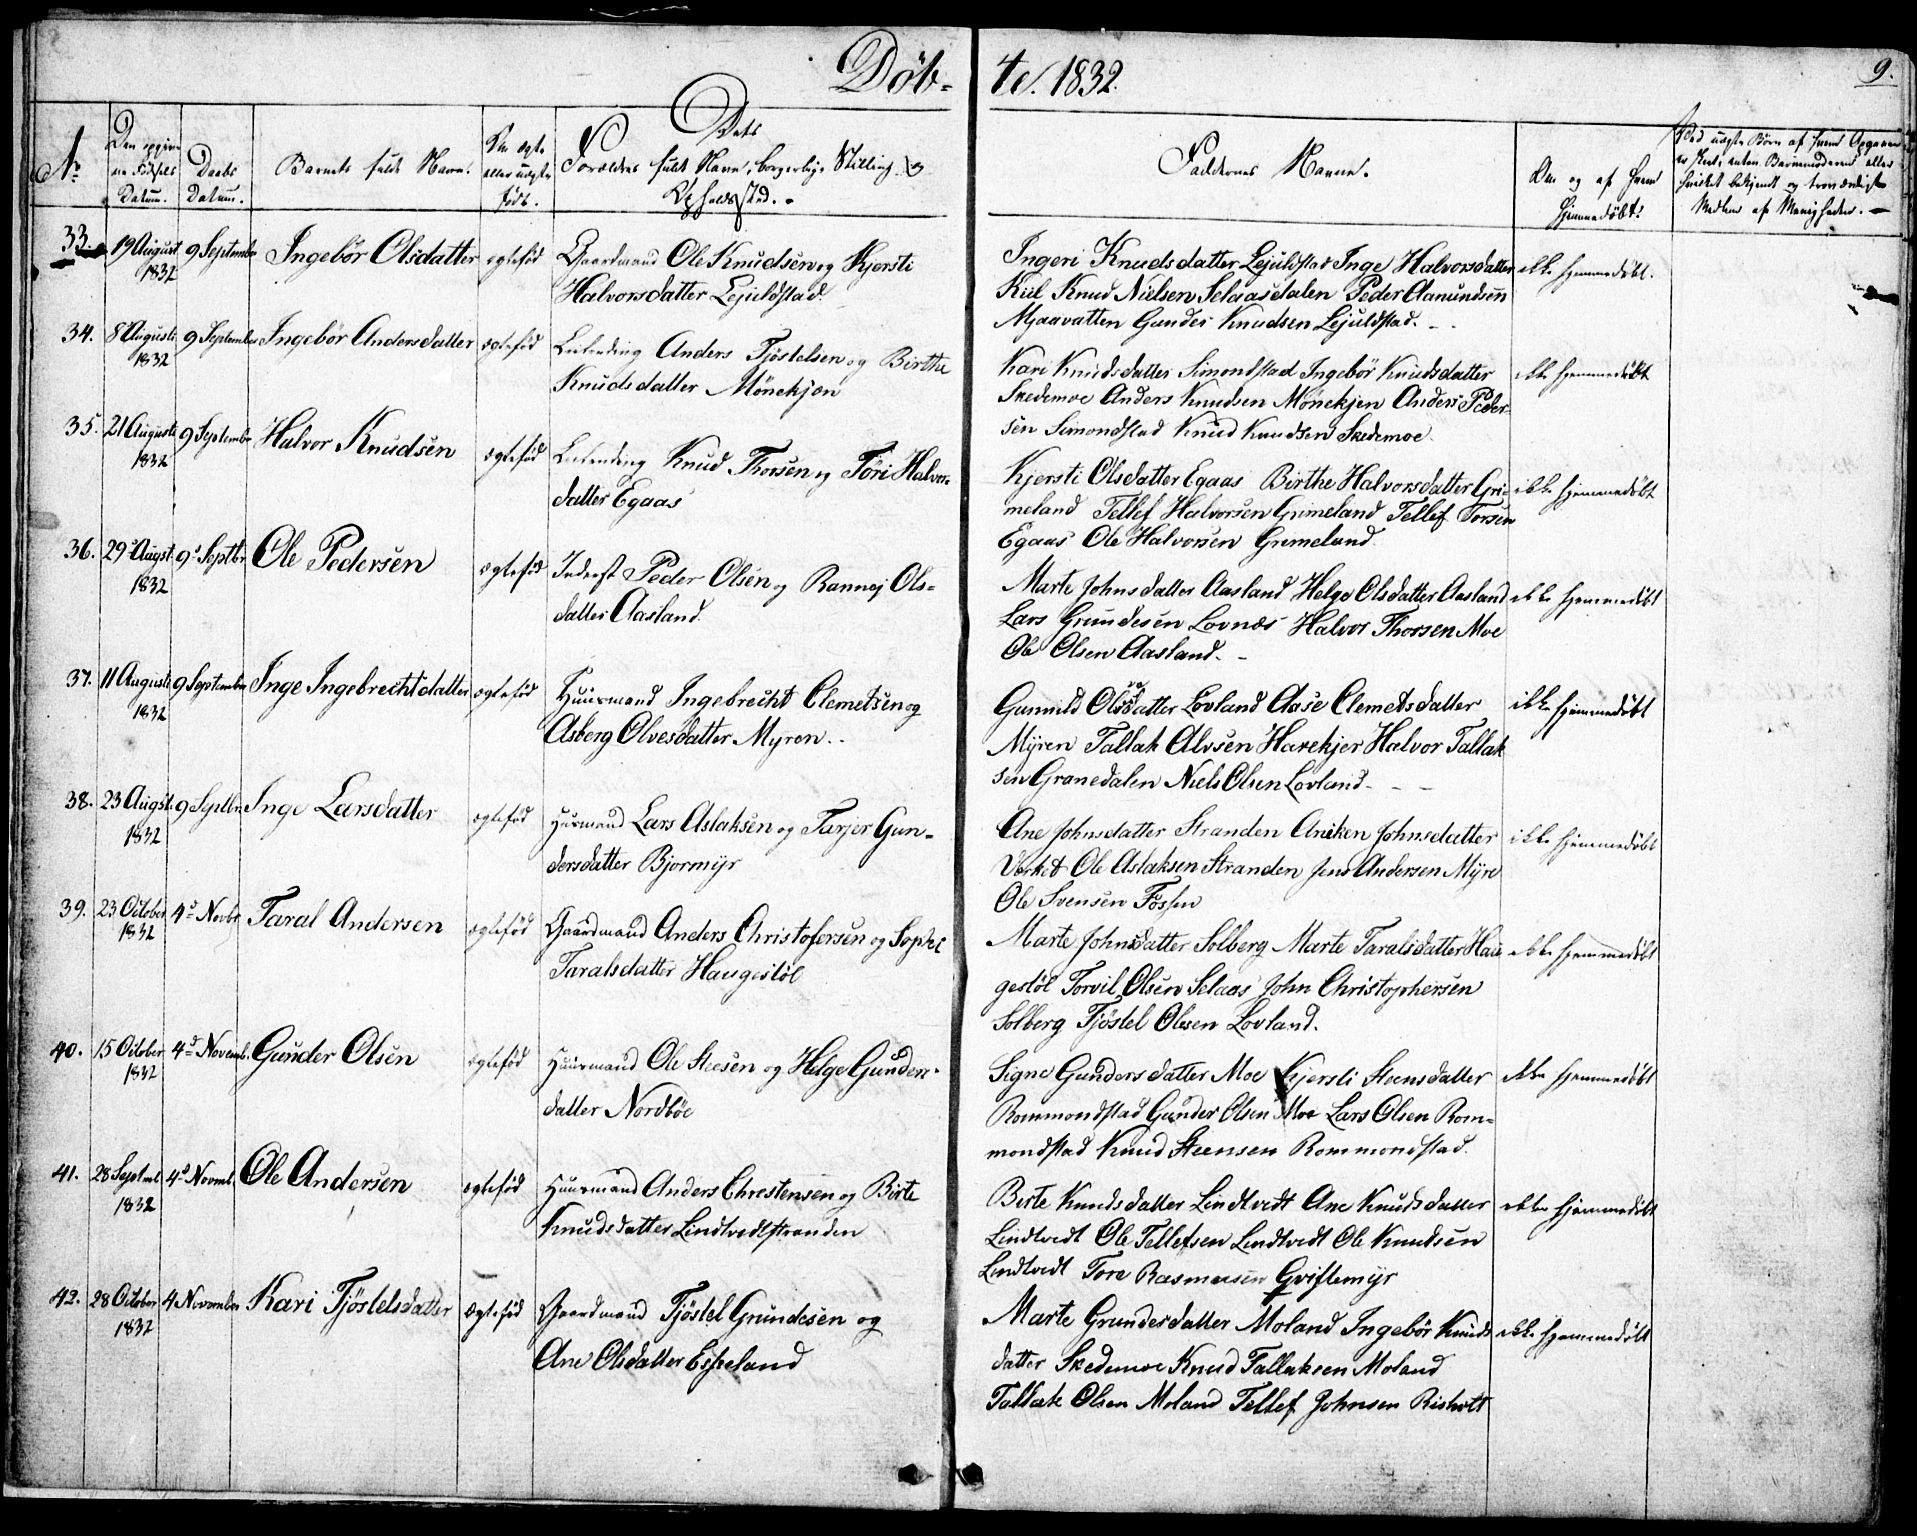 Döb- te. 1832.
9.
No
Den opgivne Fødsels Datum.
Daabs Datum.
Barnets fulde Navn.
Om ægte eller uægte født.
Dets Forældres fulde Navn, borgerlige Stilling og Opholdssted.
Faddernes Navne.
Om og af hvem hjemmedøbt.
Ved uægte Børn af hvem Opgaven er skeet, enten Barnemoderen eller hvilket bekjendt og troværdigt Medlem af Menigheden.
33. 19 August 9 September Ingebör Olsdatter ægtefød Gaardmand Ole Knudsen og Kjersti
1832 Halvorsdatter Lejuldstad.
Ingeri Knudsdatter Lejuldstad Inge Halvorsdatter ikke hjemmedøbt.
Kiil Knud Nielsen Selaasdalen Peder Aamundsen
Mjaavatten Gunder Knudsen Lejuldstad.
34. 8 Augusti 9 September Ingebör Andersdatter ægtefød Leilending Anders Tjöstelsen og Birthe
1832 Knudsdatter Mönekjen
Kari Knudsdatter Simondstad Ingebör Knudsdatter ikke hjemmedøbt
Skedemoe Anders Knudsen Mönekjen Anders Peder-
sen Simondstad Knud Knudsen Skedemoe.
35. 21 Augusti 9 September Halvor Knudsen ægtefød Leilending Knud Thorsen og Töri Halvors
1832 datter Egaas
Kjersti Olsdatter Egaas Birthe Halvorsdatter Gri- ikke hjemmedøbt
meland Tellef Halvorsen Grimeland Tellef Torsen
Egaas Ole Halvorsen Grimeland
36. 29 Augst. 9 Septbr. Ole Pedersen ægtefød Inderst Peder Olsen og Rannej Ols-
1832 datter Aasland.
Marte Johnsdatter Aasland Helge Olsdatter Aasland ikke hjemmedøbt
Lars Grundesen Lovnæs Halvor Thorsen Moe
Ole Olsen Aasland.
37. 11 Augusti 9 September Inge Ingebrechtdatter ægtefød Huusmand Ingebrecht Clemetsen og
1832 Asberg Olvesdatter Myren.
Gunnild Olsdatter Lovland Aase Clemetsdatter ikke hjemmedøbt
Myren Tallak Alvsen Havekjer Halvor Tallak
sen Granedalen Niels Olsen Lovland.
38. 23 Augst. 9 Septbr. Inge Larsdatter ægtefød Husmand Lars Aslaksen og Tarjer Gun-
1832 dersdatter Bjormyr
Ane Johnsdatter Stranden Aniken Johnsdatter ikke hjemmedøbt
Verket Ole Aslaksen Stranden Jens Andersen Myre
Ole Svensen Fossen
39. 23 October 4d Novbr. Taral Andersen ægtefød Gaardmand Anders Christofersen og Sophe
1832 Taralsdatter Haugestöl
Marte Johnsdatter Solberg Marte Taralsdatter Hau ikke hjemmedøbt
gestöl Torvil Olsen Selaas John Christophersen
Solberg Tjöstel Olsen Lovland.
40. 15 October 4d Novemb. Gunder Olsen ægtefød Huusmand Ole Steesen og Helge Gunders-
1832 datter Nordböe
Signe Gundersdatter Moe Kjersti Steensdatter ikke hjemmedøbt
Rommondstad Gunder Olsen Moe Lars Olsen Rom-
mondstad Knud Steensen Rommondstad.
41. 28 Septmb 4d Novmb. Ole Andersen ægtefød Huusmand Anders Chrestensen og Birte
1832 Knudsdatter Lindtvedtstranden
Berte Knudsdatter Lindtvedt Ane Knudsdatter ikke hjemmedøbt
Lindtvedt Ole Tellefsen Lindtvedt Ole Knudsen
Lindtvedt Tore Rasmusen Gviftemyr
42. 28 October 4 November Kari Tjöstelsdatter Ægtefød Gaardmand Tjöstel Grundesen og
1832 Ane Olsdatter Espeland
Marte Grundesdatter Moland Ingebör Knuds ikke hjemmedøbt
datter Skedemoe Knud Tallaksen Moland
Tallak Olsen Moland Tellef Johnsen Risholt